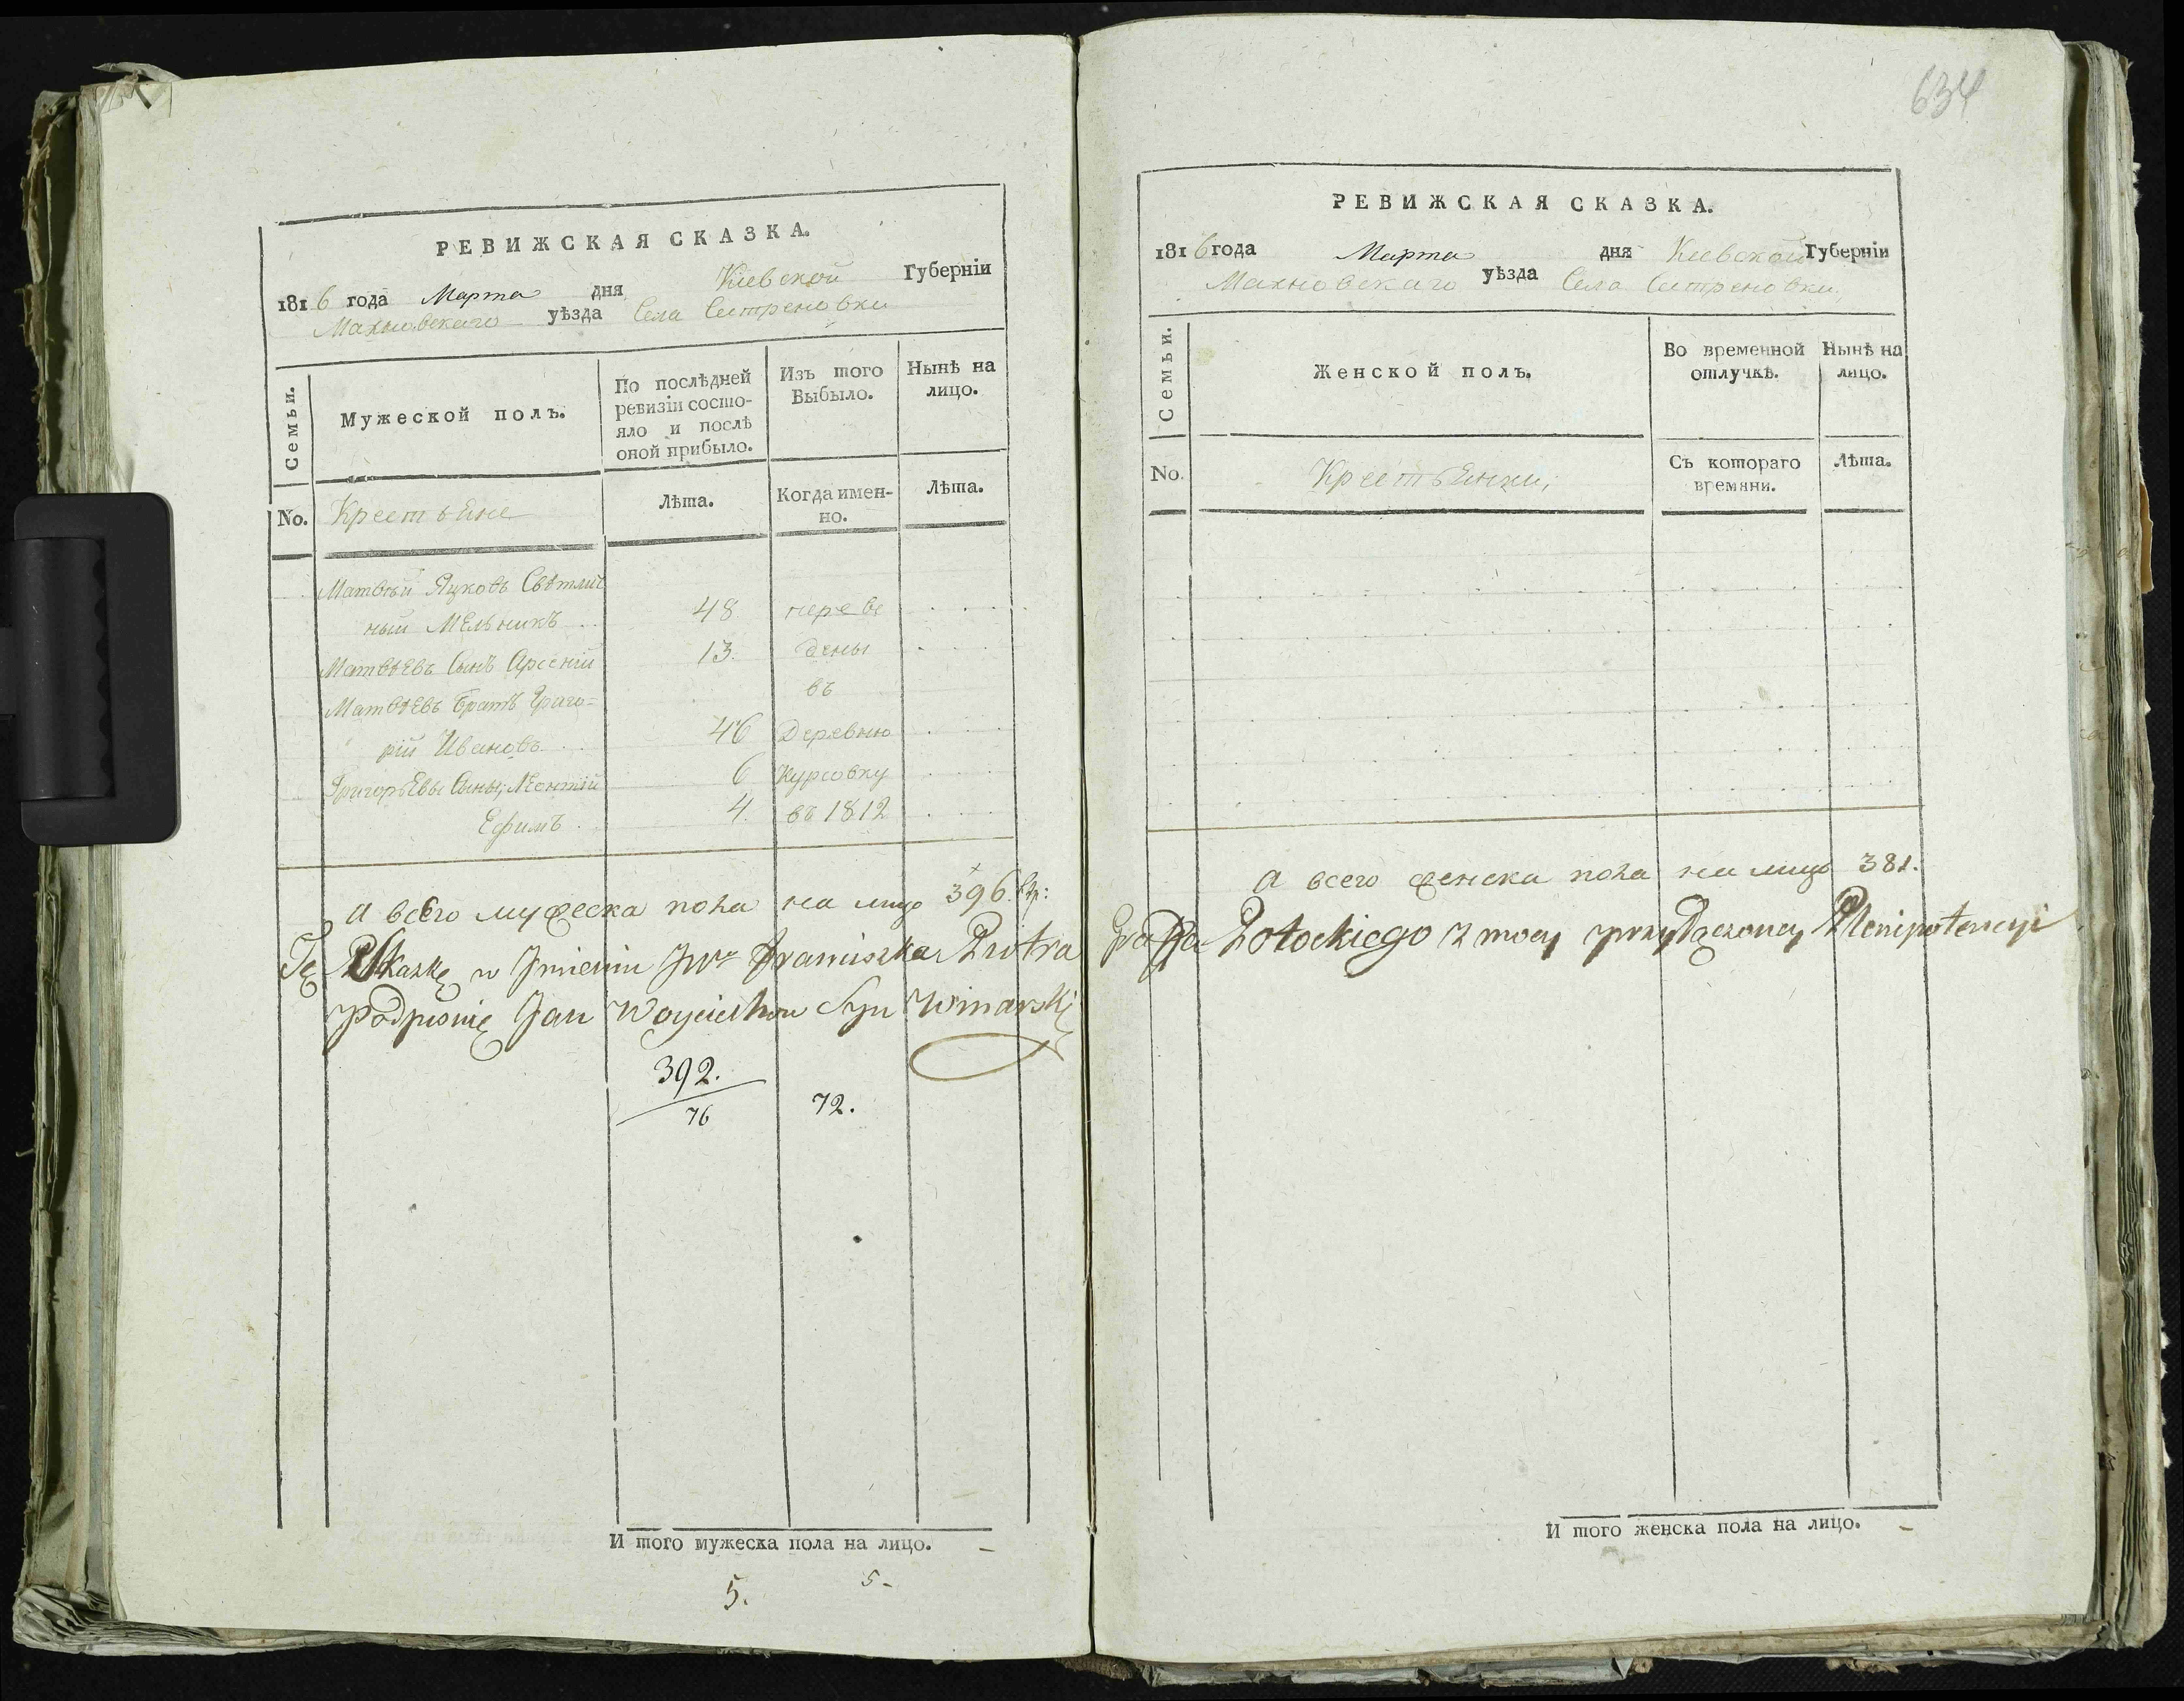 РЕВИЖСКАЯ СКАЗКА.
1816 года Марта дня Киевской Губерніи
Махновскаго уѣзда Села Сестреновки
Семьи.
Мужеской полъ.
По послѣдней ревизіи состояло и послѣ оной прибыло.
Изъ того Выбыло.
Нынѣ на лицо.
No.
Крестьяне
Лѣта.
Когда именно.
Лѣта.
Матвѣй Яцковъ Свѣтлич
ный Мельникъ 48 переве
Матвѣевъ Сынъ Арсеній 13. дены
Матвѣевъ братъ Григо= въ
рій Ивановъ 46 Деревню
Григорьевы Сыны, Леонтій 6 Курсовку
Ефимъ 4. въ 1812
а всего мужеска пола на лицо 396.
Tę Skazkę w Imieniu JW Franciszka Piotra
Podpisuię Jan Woyciechow Syn Winarski
392.
76 72.
И того мужеска пола на лицо. –
5. 5-
634
РЕВИЖСКАЯ СКАЗКА.
1816 года Марта дня Киевской Губерніи
Махновскаго уѣзда Села Сестреновки,
Семьи.
Женской полъ.
Во временной отлучкѣ.
Нынѣ на лицо.
No.
Крестьянки;
Съ котораго времяни.
Лѣта.
а всего женска пола на лицо 381.
Graffa Potockiego z mocy przyłączoney Plenipotencyi
И того женска пола на лицо. –